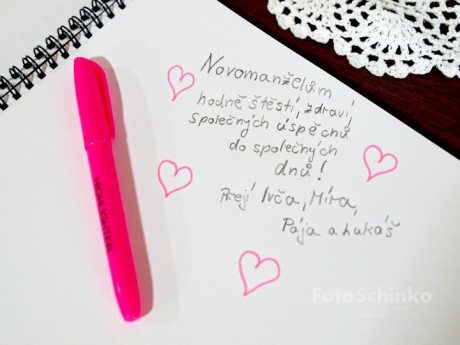 Novomanželům
hodně štěstí, zdraví,
společných úspěchů
do společných
dnů!
Přejí Ivča, Míra,
Pája a Lukáš
HIGHLIGHTER
FotoSchinko